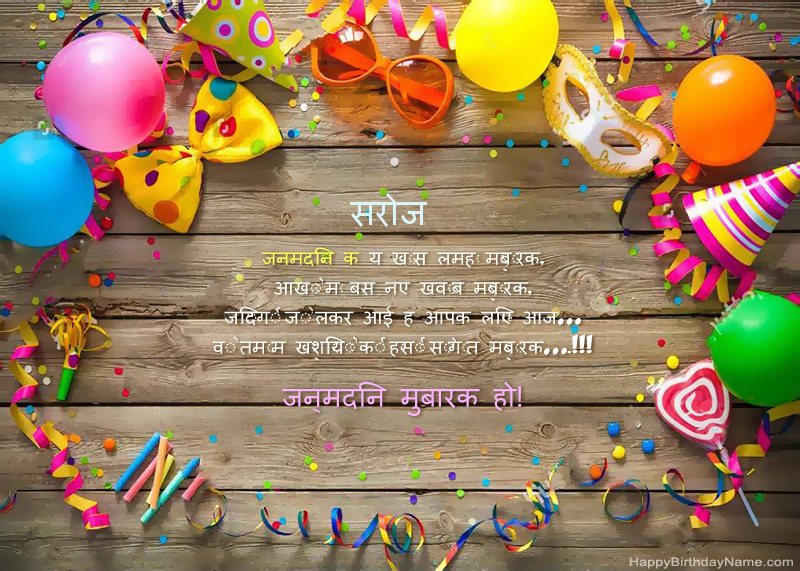 सरोज
जनमदिन क य खास लमहा मबारक,
आखो मे बस नए खवाब मबारक,
जिंदगी जो लेकर आई ह आपक लिए आज...
वो तमाम खुशियो की हसी सौगात मबारक....!!!
जन्मदिन मुबारक हो!
HappyBirthdayName.com